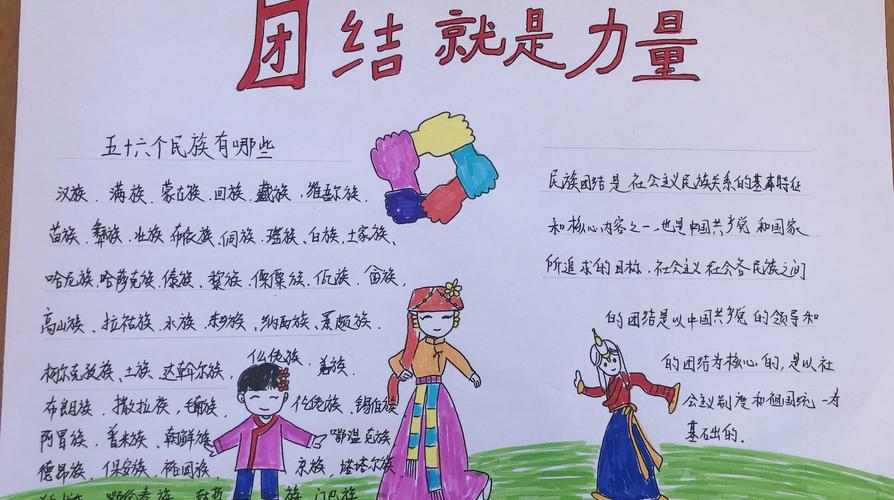 团结就是力量
五十六个民族有哪些
汉族、满族、蒙古族、回族、藏族、维吾尔族、
苗族、彝族、壮族、布依族、侗族、瑶族、白族、土家族、
哈尼族、哈萨克族、傣族、黎族、傈僳族、佤族、畲族、
高山族、拉祜族、水族、东乡族、纳西族、景颇族、
柯尔克孜族、土族、达斡尔族、仫佬族、羌族、
布朗族、撒拉族、毛南族、仡佬族、锡伯族
阿昌族、普米族、朝鲜族、鄂温克族、
德昂族、保安族、裕固族、京族、塔塔尔族
族、门巴族
民族团结是社会主义民族关系的基本特征
和核心内容之一，也是中国共产党和国家
所追求的目标。社会主义社会各民族之间
的团结是以中国共产党的领导和
的团结为核心的，是以社
会主义制度和祖国统一为
基础的。